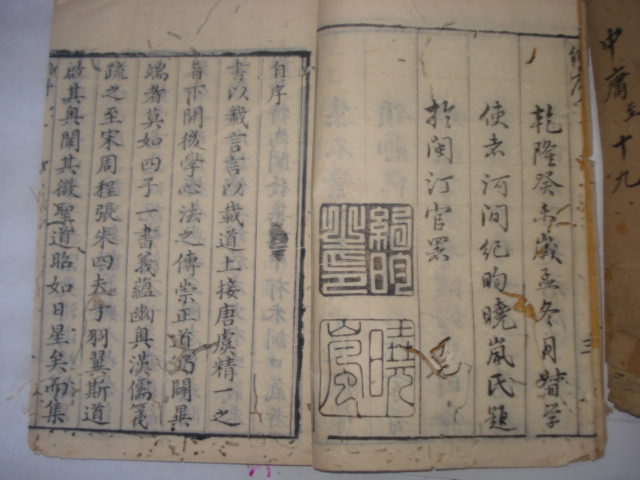 中庸
十九
乾隆癸未歲孟冬月督學
使者河間紀昀曉嵐氏題
於閩汀官署
紀昀之印
曉嵐
自序
書以載言言以載道上接唐虞精一之
旨下開後學心法之傳崇正道闢異
端者莫如四子一書義蘊幽奧漢儒箋
疏之至宋周程張朱四夫子羽翼斯道
啟其奧闡其微聖道昭如日星矣而集